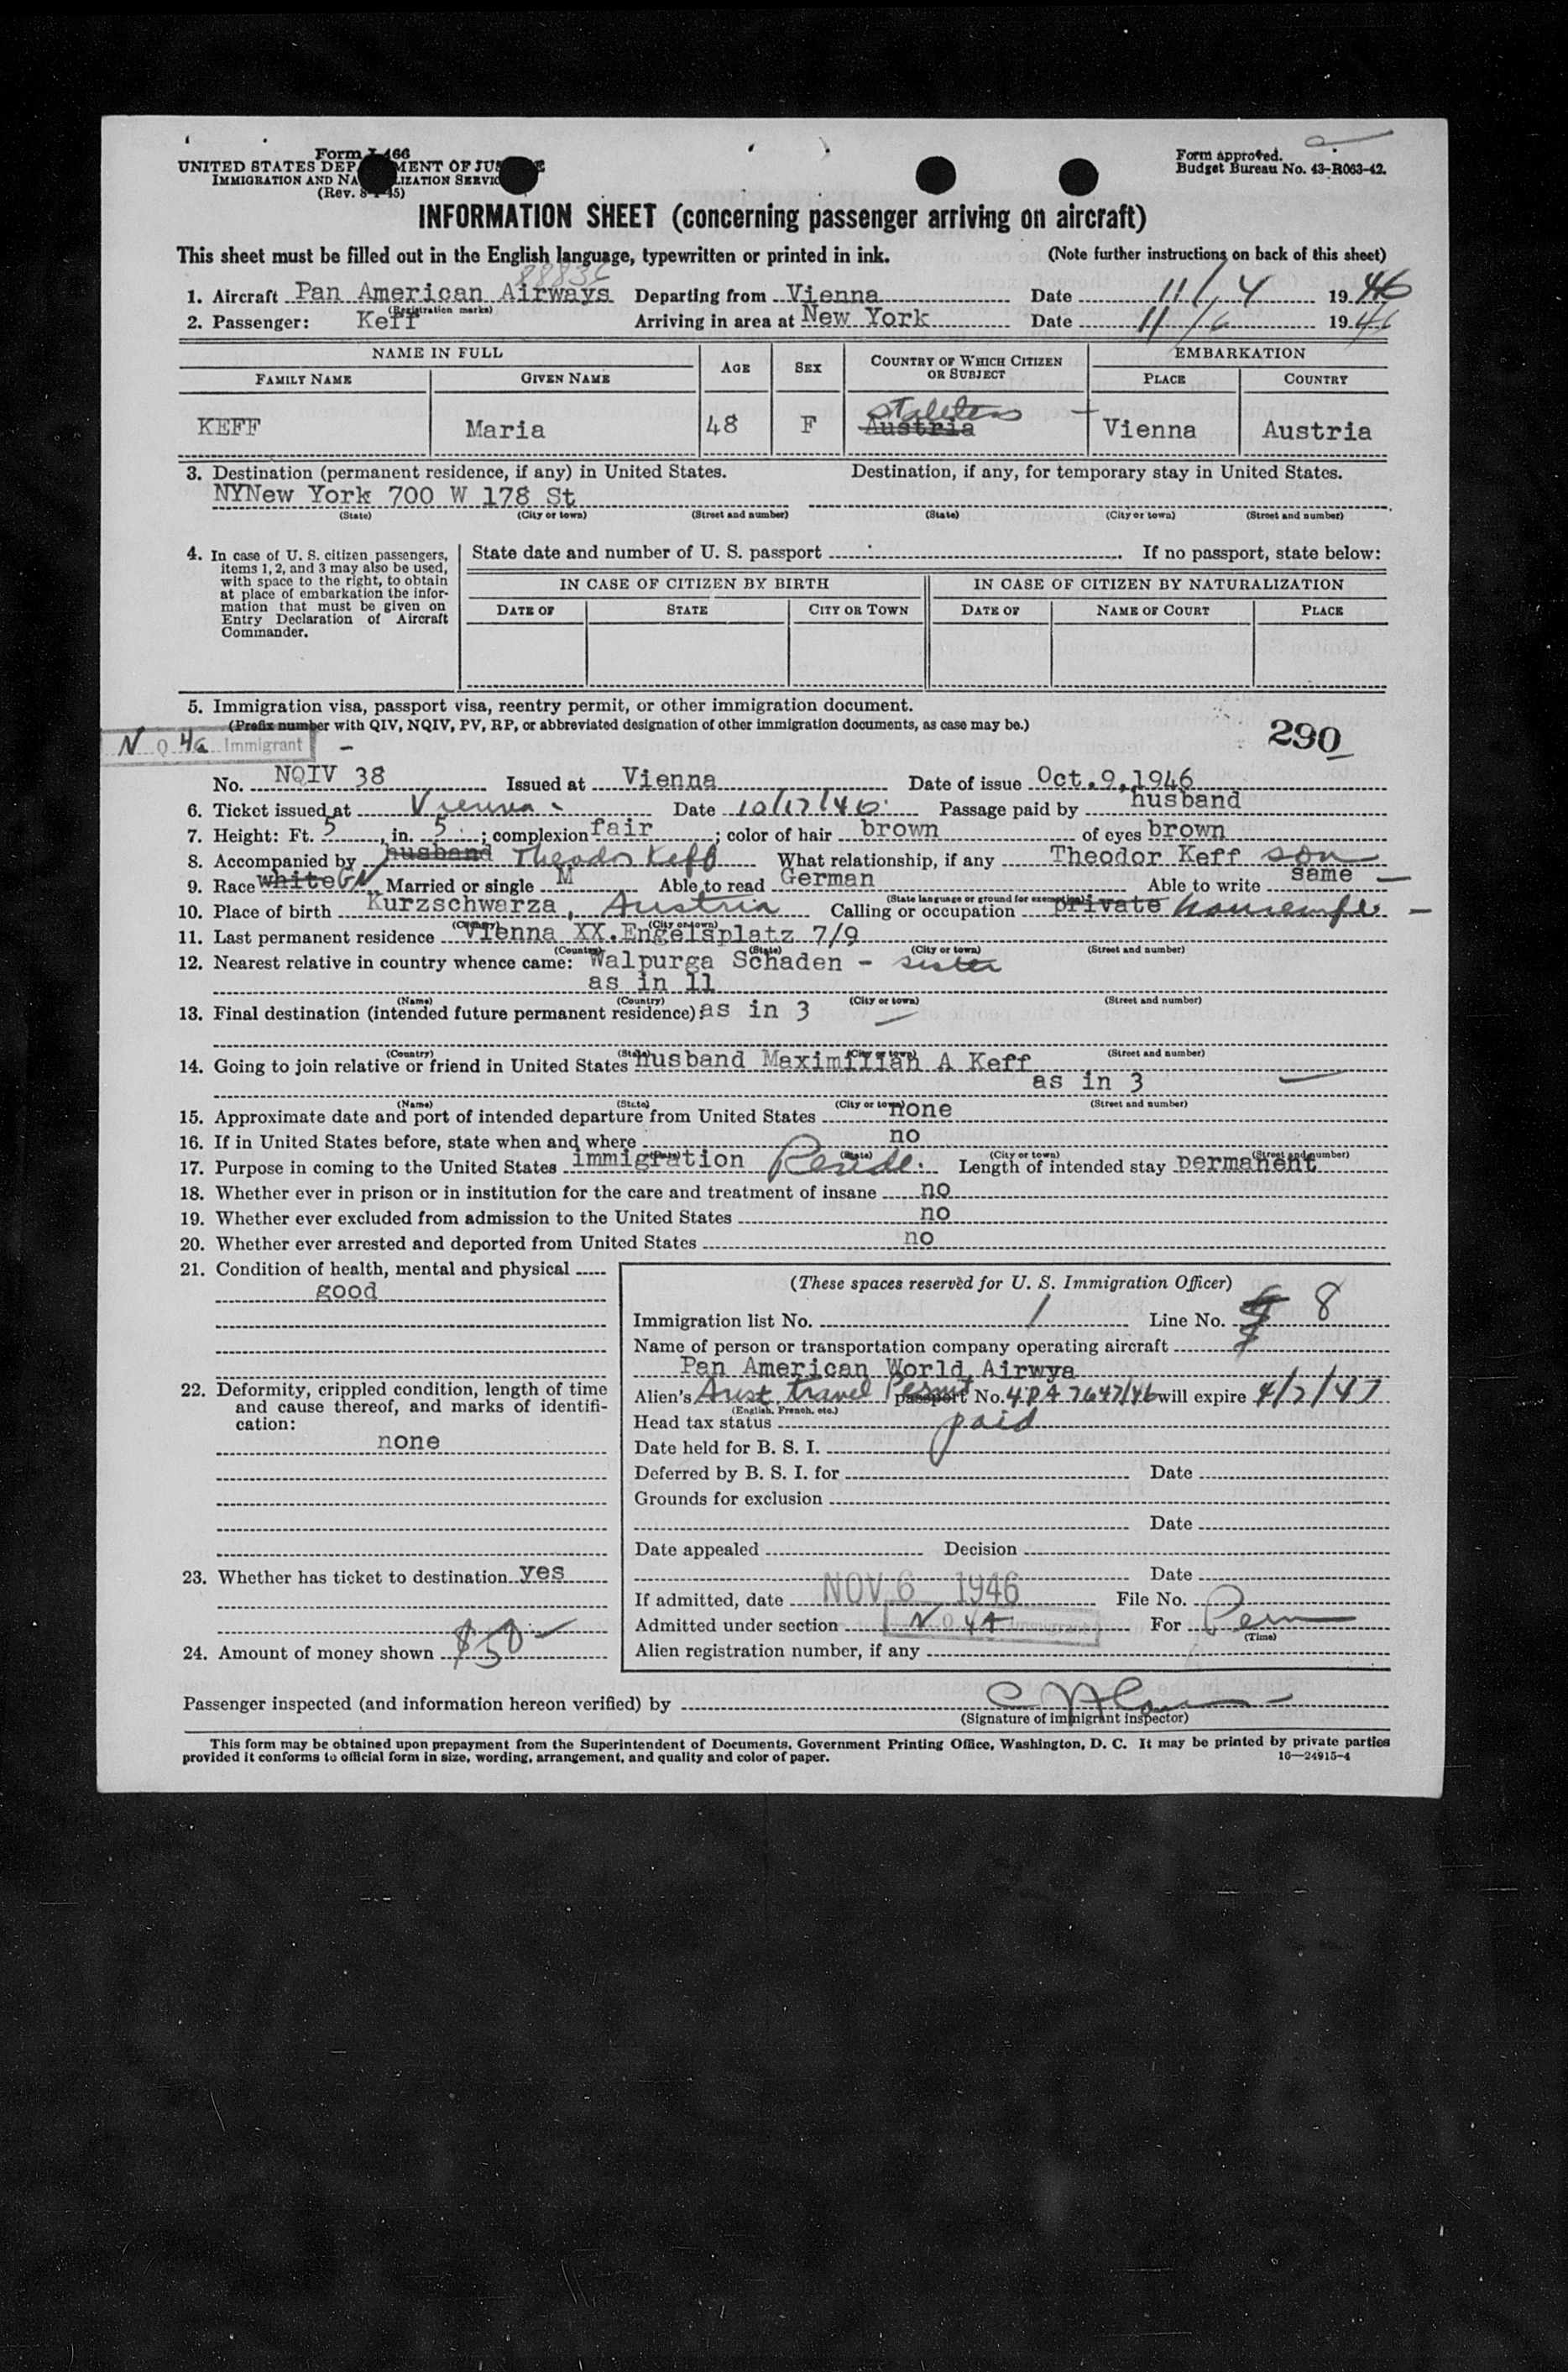 Form I-466
UNITED STATES DEPARTMENT OF JUSTICE
IMMIGRATION AND NATURALIZATION SERVICE
(Rev. 8-1-45)
Form approved.
Budget Bureau No. 43-R063-42.
INFORMATION SHEET (concerning passenger arriving on aircraft)
This sheet must be filled out in the English language, typewritten or printed in ink. (Note further instructions on back of this sheet)
1. Aircraft Pan American Airways Departing from Vienna Date 11/4 1946
(Registration marks)
2. Passenger: Keff Arriving in area at New York Date 11/6 1946
NAME IN FULL AGE SEX COUNTRY OF WHICH CITIZEN OR SUBJECT EMBARKATION
FAMILY NAME GIVEN NAME PLACE COUNTRY
stateless
KEFF Maria 48 F Austria Vienna Austria
3. Destination (permanent residence, if any) in United States. Destination, if any, for temporary stay in United States.
NYNew York 700 W 178 St
(State) (City or town) (Street and number) (State) (City or town) (Street and number)
4. In case of U. S. citizen passengers, items 1, 2, and 3 may also be used, with space to the right, to obtain at place of embarkation the information that must be given on Entry Declaration of Aircraft Commander.
State date and number of U. S. passport . If no passport, state below:
IN CASE OF CITIZEN BY BIRTH IN CASE OF CITIZEN BY NATURALIZATION
DATE OF STATE CITY OR TOWN DATE OF NAME OF COURT PLACE
5. Immigration visa, passport visa, reentry permit, or other immigration document.
(Prefix number with QIV, NQIV, PV, RP, or abbreviated designation of other immigration documents, as case may be.)
N Q 4a Immigrant
290
No. NQIV 38 Issued at Vienna Date of issue Oct.9,1946
6. Ticket issued at Vienna Date 10/17/46 Passage paid by husband
7. Height: Ft. 5, in. 5; complexion fair; color of hair brown of eyes brown
8. Accompanied by husband Theodor Keff What relationship, if any Theodor Keff son
9. Race white GN Married or single M Able to read German Able to write same
(State language or ground for exemption)
10. Place of birth Kurzschwarza, Austria Calling or occupation private housewife
(Country) (City or town)
11. Last permanent residence Vienna XX.Engelsplatz 7/9
(Country) (State) (City or town) (Street and number)
12. Nearest relative in country whence came: Walpurga Schaden - sister
as in 11
(Name) (Country) (City or town) (Street and number)
13. Final destination (intended future permanent residence): as in 3
(Country) (State) (City or town) (Street and number)
14. Going to join relative or friend in United States husband Maximilian A Keff
as in 3
(Name) (State) (City or town) (Street and number)
15. Approximate date and port of intended departure from United States none
16. If in United States before, state when and where no
(State) (City or town) (Street and number)
17. Purpose in coming to the United States immigration Reside. Length of intended stay permanent
18. Whether ever in prison or in institution for the care and treatment of insane no
19. Whether ever excluded from admission to the United States no
20. Whether ever arrested and deported from United States no
21. Condition of health, mental and physical
good
22. Deformity, crippled condition, length of time and cause thereof, and marks of identification:
none
23. Whether has ticket to destination yes
24. Amount of money shown $50
(These spaces reserved for U. S. Immigration Officer)
Immigration list No. 1 Line No. 8
Name of person or transportation company operating aircraft
Pan American World Airwya
Alien's Aust travel Permit passport No. 4PA 7647/46 will expire 4/2/47
(English, French, etc.)
Head tax status paid
Date held for B. S. I.
Deferred by B. S. I. for Date
Grounds for exclusion
Date
Date appealed Decision
Date
If admitted, date NOV 6 1946 File No.
Admitted under section N Q 4A For Perm
(Time)
Alien registration number, if any
Passenger inspected (and information hereon verified) by
(Signature of immigrant inspector)
This form may be obtained upon prepayment from the Superintendent of Documents, Government Printing Office, Washington, D. C. It may be printed by private parties
provided it conforms to official form in size, wording, arrangement, and quality and color of paper. 16—24915-4